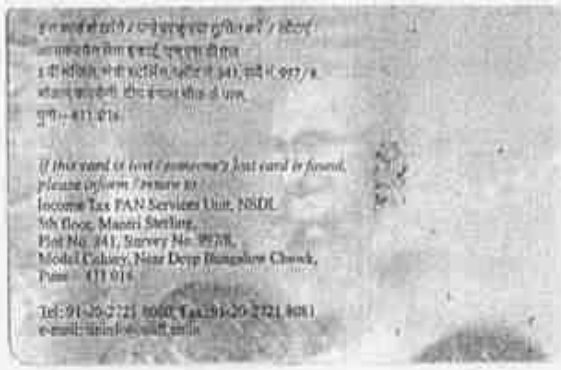 इस कार्ड के खोने / पाने पर कृपया सूचित करें / लौटाएं :
आयकर पैन सेवा इकाई, एन एस डी एल
5 वीं मंजिल, मंत्री स्टर्लिंग, प्लॉट नं. 341, सर्वे नं. 997/8,
मॉडल कालोनी, दीप बंगला चौक के पास,
पुणे - 411 016.
If this card is lost / someone's lost card is found,
please inform / return to :
Income Tax PAN Services Unit, NSDL
5th floor, Mantri Sterling,
Plot No. 341, Survey No. 997/8,
Model Colony, Near Deep Bungalow Chowk,
Pune - 411 016.
Tel: 91-20-2721 8080, Fax: 91-20-2721 8081
e-mail: